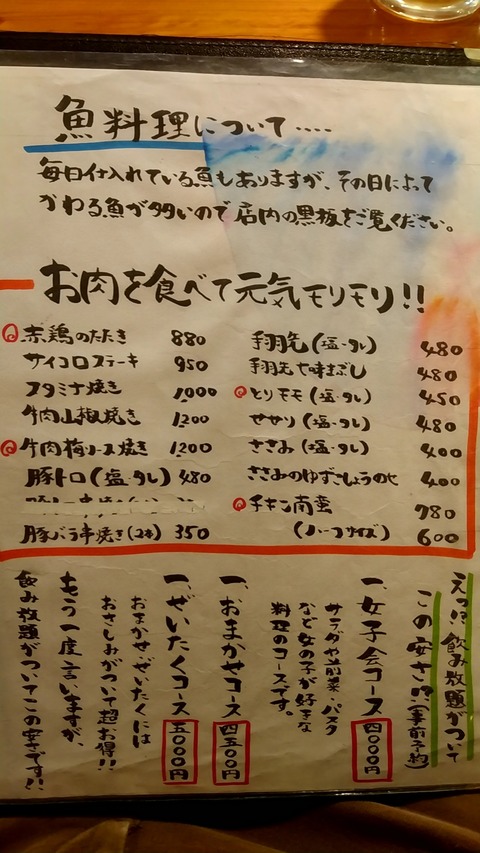 魚料理について‥‥
毎日仕入れている魚もありますが、その日によって
かわる魚が多いので店内の黒板をご覧ください。
お肉を食べて元気モリモリ!!
赤鶏のたたき 880
サイコロステーキ 950
スタミナ焼き 1,000
牛肉山椒焼き 1200
牛肉梅ソース焼き 1200
豚トロ(塩・タレ) 480
豚バラ串焼き(2本) 350
手羽先(塩・タレ) 480
手羽先七味まぶし 480
とりモモ(塩・タレ) 450
せせり(塩・タレ) 480
ささみ(塩・タレ) 400
ささみのゆずこしょうのせ 400
チキン南蛮 780
(ハーフサイズ) 600
えっ!?飲み放題がついて
この安さ!?(事前予約)
一、女子会コース 四〇〇〇円
サラダや前菜・パスタ
など女の子が好きな
料理のコースです。
一、おまかせコース 四五〇〇円
一、ぜいたくコース 五〇〇〇円
おまかせ・ぜいたくには
おさしみがついて超お得!!
もう一度言いますが、
飲み放題がついてこの安さです!!